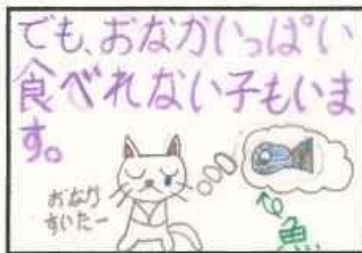 でも、おなかいっぱい
食べれない子もいま
す。
おなか
すいたー
魚